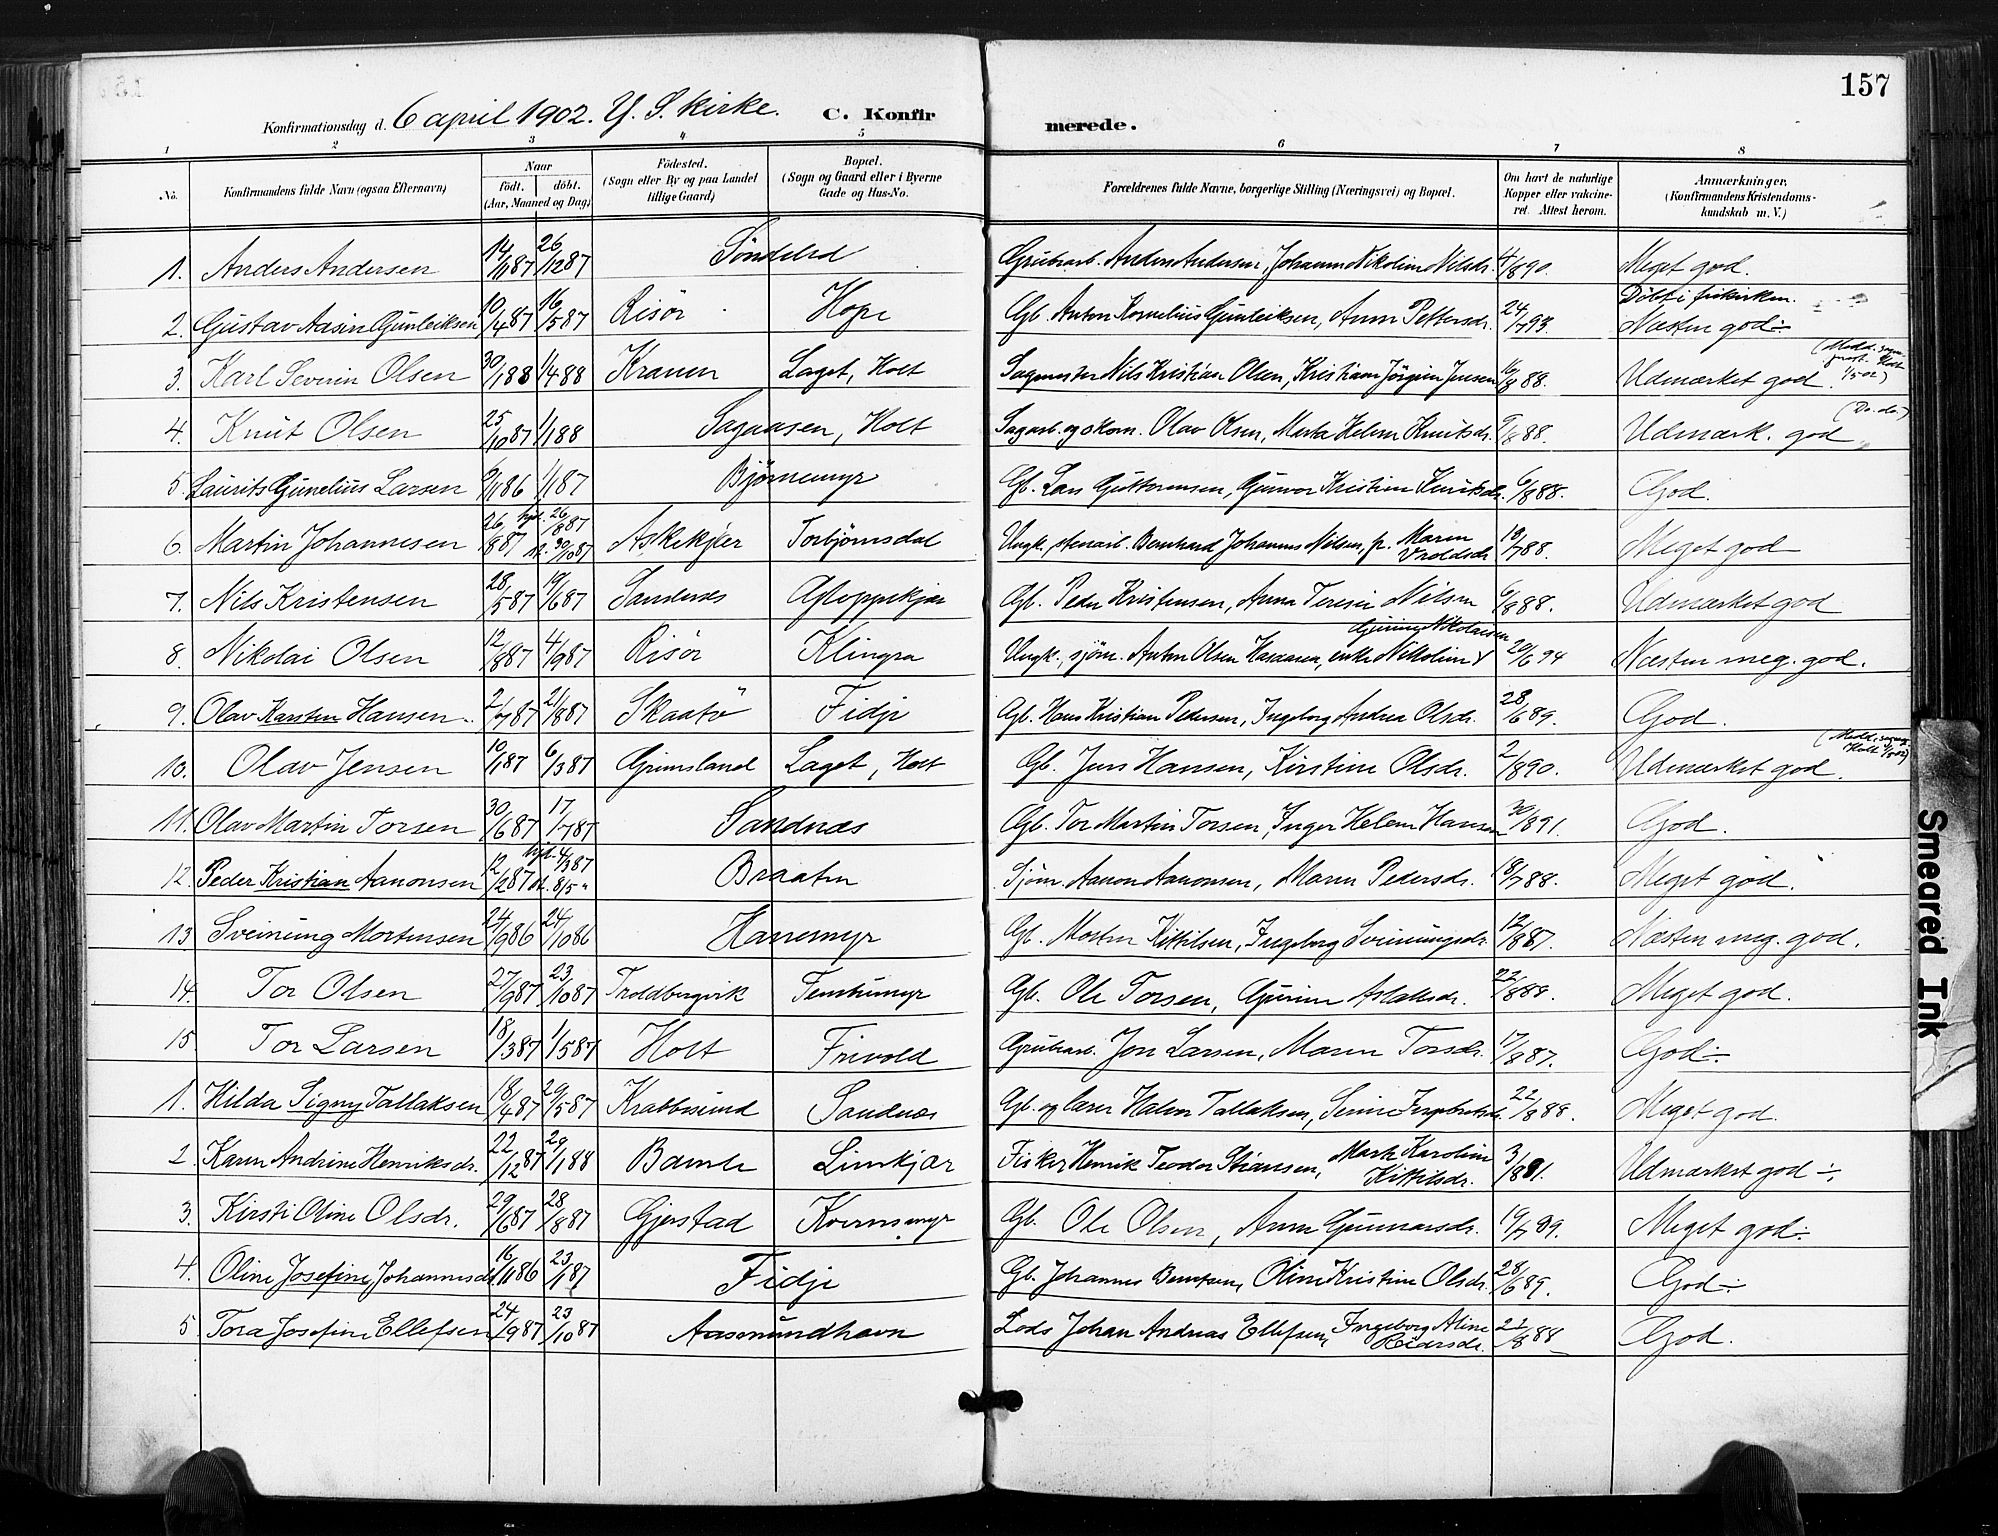 157
Konfirmationsdag d. 6 april 1902. Y. S. kirke. C. Konfir merede.
1 2 3 4 5 6 7 8
No. Konfirmandens fulde Navn (ogsaa Efternavn) Naar født. døbt. (Aar, Maaned og Dag) Fødested. (Sogn eller By og paa Landet tillige Gaard) Bopæl. (Sogn og Gaard eller i Byerne Gade og Hus-No. Forældrenes fulde Navne, borgerlige Stilling (Næringsvei) og Bopæl. Om havt de naturlige Kopper eller vakcineret. Attest herom. Anmærkninger, (Konfirmandens Kristendomskundskab m. V.)
1. Anders Andersen 14/1187 26/1287 Søndeled Grubearb. Anders Andersen, Johanne Nikoline Nilsdr. 4/890. Meget god.
Døbt i frikirken.
2. Gustav Aasin Gunleiksen 10/487 16/587 Risør Hope Gb. Anton Kornelius Gunleiksen, Anne Pettersdr. 24/793. Næsten god÷
3. Karl Severin Olsen 30/188 1/488 Kranen Laget, Holt Sagmester Nils Kristian Olsen, Kristiane Jörgine Jensen 16/888. Udmærket god.
4. Knut Olsen 25/1087 1/188 Sagaasen, Holt Sagarb. og skom. Olav Olsen, Marta Helene Knutsdr. /888. Udmærk. god (Do. do.)
5. Laurits Gunelius Larsen /1186 1/187 Bjørnemyr Gb. Lars Guttormsen, Gunvor Kristine Knutsdr. 6/888. God.
6. Martin Johannesen 26/887 hjd. 26/887 k. 30/1087 Askekjær Torbjørnsdal Ungk., Bernhard Johannes Nilsen, p. Maren Vroldsdr. 18/788. Meget god
7. Nils Kristensen 28/587 19/687 Sandnes Gloppekjær Gb. Peder Kristensen, Anne Teresie Nilsen 6/888. Udmærket god
8. Nikolai Olsen 12/887 4/987 Risør Klingra Ungk., sjöm. Anton Olsen Hasaasen, enke Nikoline Gurine Nikolaisen 20/694 Næsten meg. god.
9. Olav Karsten Hansen 2/787 21/887 Skaatö Fidje Gb. Hans Kristian Pedersen, Ingeborg Andrea Olsdr. 28/689. God.
10. Olav Jensen 10/187 6/387 Grimsland Laget, Holt Gb. Jens Hansen, Kirstine Olsdr. 2/890. Udmærket god.
11. Olav Martin Torsen 30/687 17/787 Sandnæs Gb. Tor Martin Torsen, Inger Helene Hansen 30/891. God.
12. Peder Kristian Aanonsen 12/287 hjd. 4/387 k. 8/5 " Braaten Sjöm. Aanon Aanonsen, Maren Pedersdr. 18/788. Meget god.
13 Sveinung Mortensen 24/986 24/1086 Hanemyr Gb. Morten Kittilsen, Ingeborg Sveinungsdr. 12/887. Næsten meg. god.
14. Tor Olsen 27/987 23/1087 Troldbergvik Tenstumyr Gb. Ole Torsen, Gurine Aslaksdr. 22/888. Meget god.
15. Tor Larsen 18/387 1/587 Holt Frivold Grubearb. Jon Larsen, Maren Torsdr. 17/887. God÷
1. Hilda Signy Tallaksen 18/487 29/587 Krabbesund Sandnæs Gb. og lærer Halvor Tallaksen, Serine Ingebretsdr. 22/888. Meget god.
2. Karen Andrine Henriksdr. 22/1287 29/188 Bamle Limkjær Fisker Henrik Teodor Stiansen, Marte Karoline Kittilsdr. 3/891. Udmærket god÷
3. Kirsti Oline Olsdr. 29/687 28/887 Gjerstad Kvernsmyr Gb. Ole Olsen, Anne Gunnarsdr. 19/789. Meget god÷
4. Oline Josefine Johannesdr. 16/1186 23/187 Fidje Gb. Johannes Bentsen, Oline Kristine Olsdr. 28/689. God÷
5. Tora Josefine Ellefsen 24/987 23/1087 Aasmundhavn Lods Johan Andreas Ellefsen, Ingeborg Aline Reiersdr. 21/888 God.
Smeared Ink